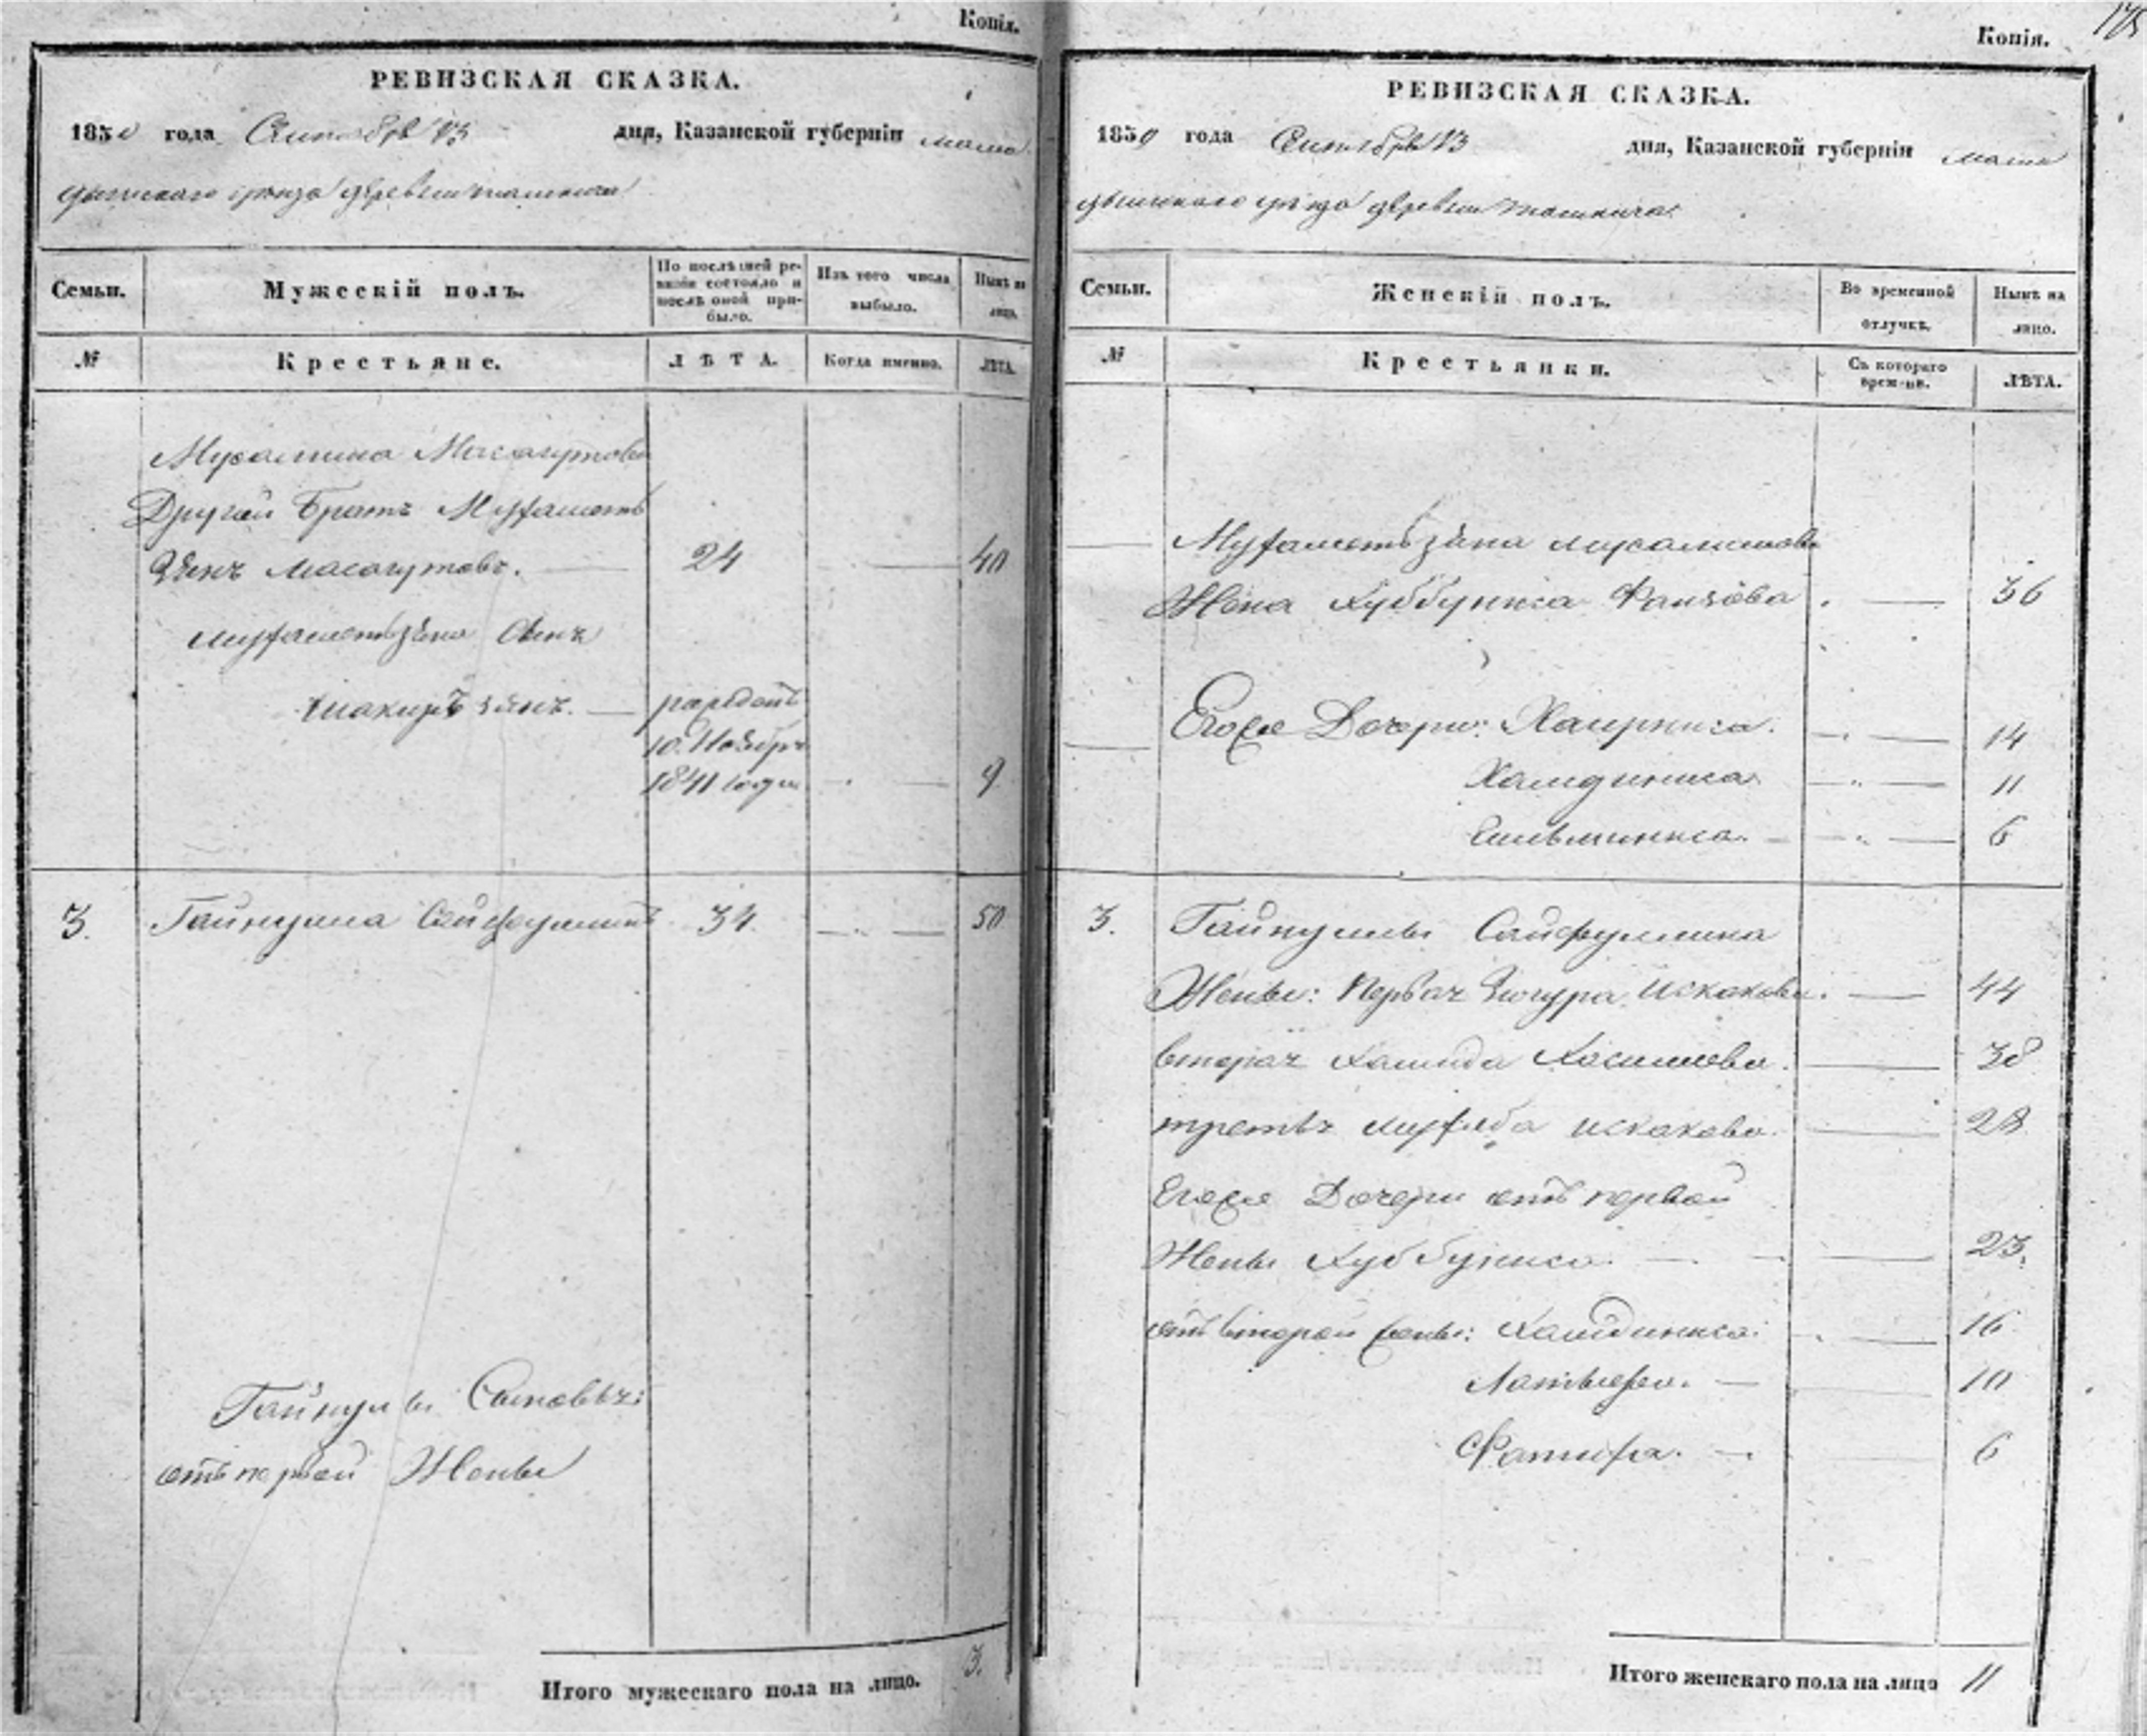 Копія.
РЕВИЗСКАЯ СКАЗКА.
1850 года Сентября 13 дня, Казанской губерніи мама
дышскаго уѣзда деревни ташкича
Семьи.
Мужескій полъ.
По послѣдней ре-
визіи состояло и
послѣ оной при-
было.
Изъ того числа
выбыло.
Нынѣ на
лицо.
№
Крестьяне.
ЛѢТА.
Когда именно.
ЛѢТА.
Другой Братъ Мухаметъ
зянъ Масагутовъ. 24 40
мухаметьзяна Сынъ
шакирь зянъ. рожденъ
10. Ноября
1841 года 9
3. Гайнулла Сайфуллинъ 34. 50
Гайнуллы Сыновья:
отъ первой Жены
Итого мужескаго пола на лицо. 3.
175
Копія.
РЕВИЗСКАЯ СКАЗКА.
1850 года Сентября 13 дня, Казанской губерніи мама
дышскаго уѣзда деревни ташкича
Семьи.
Женскій полъ.
Во временной
отлучкѣ.
Нынѣ на
лицо.
№
Крестьянки.
Съ котораго
времени.
ЛѢТА.
Мухаметьзяна
Жена Хуббуниса Фаизова 36
Егоже Дочери: Хаирниса. 14
Хамдиниса. 11
6
3. Гайнуллы Сайфуллина
Жены: Первая Зюгура Искакова. 44
вторая Хамида Хасимова. 38
третья искакова. 28
Егоже Дочери отъ первой
Жены Хуббуниса. 23.
отъ второй жены: Хамдиниса: 16
Латыфа. 10
6
Итого женскаго пола на лицо 11